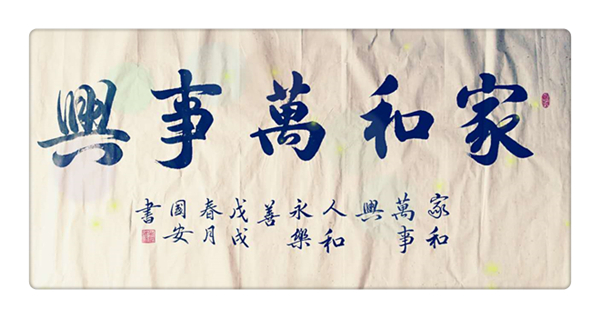 家和萬事興
家和
萬事
興
人和
永樂
善
戊戌
春月
国安
書